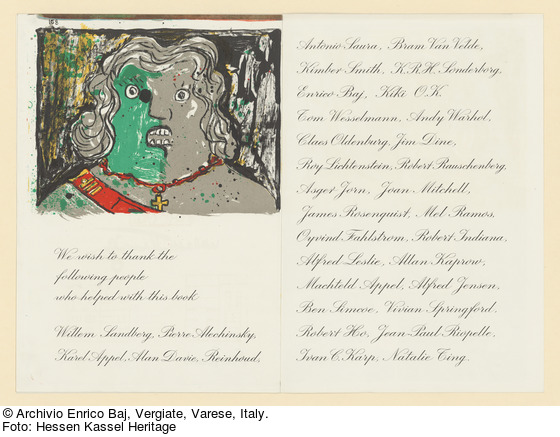 168
We wish to thank the
following people
who helped with this book
Willem Sandberg, Pierre Alechinsky,
Karel Appel, Alan Davie, Reinhoud,
Antonio Saura, Bram Van Velde,
Kimber Smith, K.R.H. Sonderborg,
Enrico Baj, Kiki O.K.
Tom Wesselmann, Andy Warhol,
Claes Oldenburg, Jim Dine,
Roy Lichtenstein, Robert Rauschenberg,
Asger Jorn, Joan Mitchell,
James Rosenquist, Mel Ramos,
Oyvind Fahlstrom, Robert Indiana,
Alfred Leslie, Allan Kaprow,
Machteld Appel, Alfred Jensen,
Ben Simcoe, Vivian Springford,
Robert Ho, Jean-Paul Riopelle,
Ivan C. Karp, Natalie Ting.
© Archivio Enrico Baj, Vergiate, Varese, Italy.
Foto: Hessen Kassel Heritage